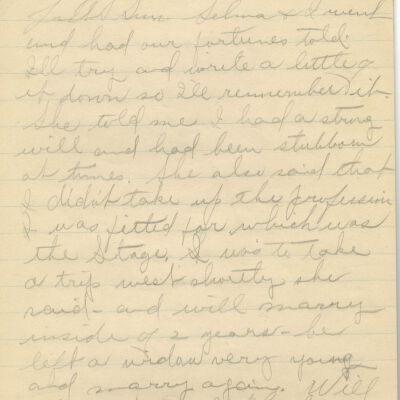 Last Sun. Selma & I went
and had our fortunes told.
I'll try and write a little
it down so I'll remember it.
She told me I had a strong
will and had been stubborn
at times. She also said that
I didn't take up the profession
I was fitted for which was
the Stage. I was to take
a trip west shortly she
said - and will marry
inside of 2 years - be
left a widow very young
and marry again. Will